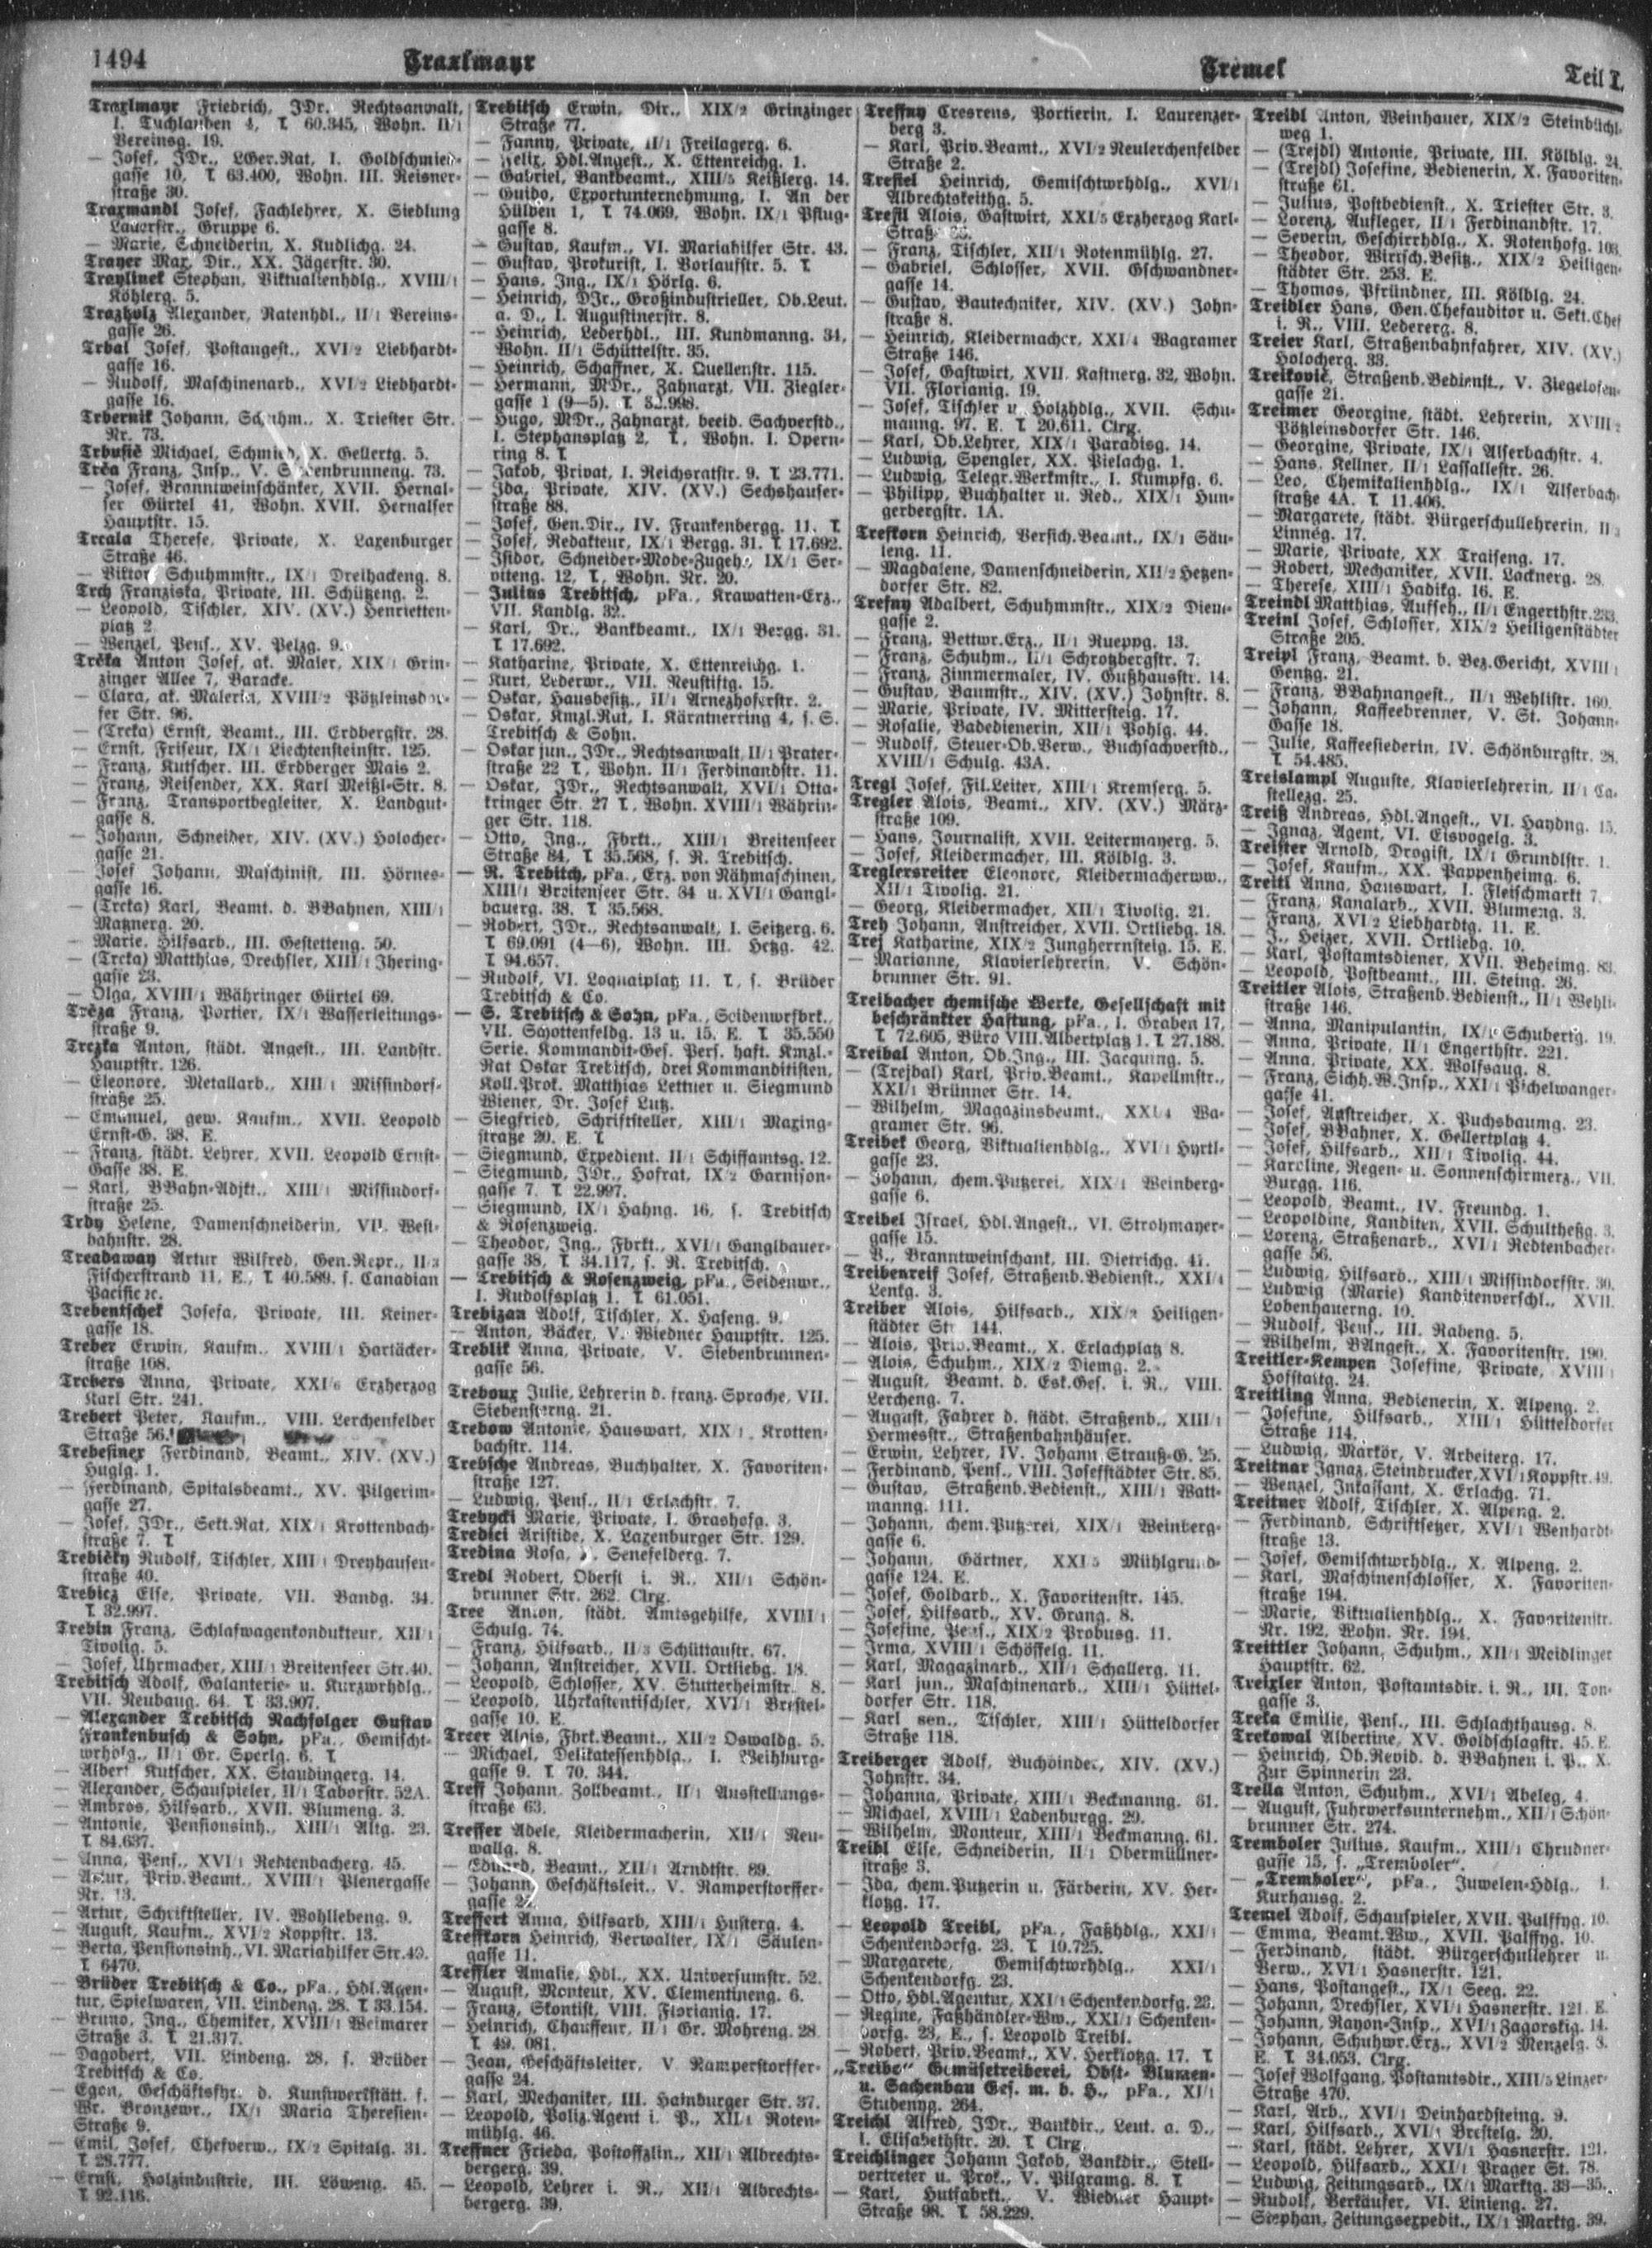 1494
Traxlmayr
Tremel
Teil I.
Traxlmayr Friedrich, JDr., Rechtsanwalt,
I. Tuchlauben 4, T. 60.345, Wohn. II/1
Vereinsg. 19.
— Josef, JDr., LGer.Rat, I. Goldschmied-
gasse 10, T. 63.400, Wohn. III. Reisner-
straße 30.
Traxmandl Josef, Fachlehrer, X. Siedlung
Laaerstr., Gruppe 6.
— Marie, Schneiderin, X. Kudlichg. 24.
Trayer Max, Dir., XX. Jägerstr. 30.
Traylinek Stephan, Viktualienhdlg., XVIII/1
Köhlerg. 5.
Trazholz Alexander, Ratenhdl., II/1 Vereins-
gasse 26.
Trbal Josef, Postangest., XVI/2 Liebhardt-
gasse 16.
— Rudolf, Maschinenarb., XVI/2 Liebhardt-
gasse 16.
Trbernik Johann, Schuhm., X. Triester Str.
Nr. 73.
Trbusič Michael, Schmied, X. Gellertg. 5.
Trča Franz, Insp., V. Siebenbrunneng. 73.
— Josef, Branntweinschänker, XVII. Hernal-
ser Gürtel 41, Wohn. XVII. Hernalser
Hauptstr. 15.
Trcala Therese, Private, X. Laxenburger
Straße 46.
— Viktor, Schuhmmstr., IX/1 Dreihackeng. 8.
Trch Franziska, Private, III. Schützeng. 2.
— Leopold, Tischler, XIV. (XV.) Henrietten-
platz 2.
— Wenzel, Pens., XV. Pelzg. 9.
Trčka Anton Josef, ak. Maler, XIX/1 Grin-
zinger Allee 7, Baracke.
— Clara, ak. Malerin, XVIII/2 Pötzleinsdor-
fer Str. 96.
— (Trcka) Ernst, Beamt., III. Erdbergstr. 28.
— Ernst, Friseur, IX/1 Liechtensteinstr. 125.
— Franz, Kutscher, III. Erdberger Mais 2.
— Franz, Reisender, XX. Karl Meißl-Str. 8.
— Franz, Transportbegleiter, X. Landgut-
gasse 8.
— Johann, Schneider, XIV. (XV.) Holocher-
gasse 21.
— Josef Johann, Maschinist, III. Hörnes-
gasse 16.
— (Trcka) Karl, Beamt. d. BBahnen, XIII/1
Matznerg. 20.
— Marie, Hilfsarb., III. Gestetteng. 50.
— (Trcka) Matthias, Drechsler, XIII/1 Jhering-
gasse 23.
— Olga, XVIII/1 Währinger Gürtel 69.
Trčza Franz, Portier, IX/1 Wasserleitungs-
straße 9.
Trczka Anton, städt. Angest., III. Landstr.
Hauptstr. 126.
— Eleonore, Metallarb., XIII/1 Missindorf-
straße 25.
— Emanuel, gew. Kaufm., XVII. Leopold
Ernst-G. 38. E.
— Franz, städt. Lehrer, XVII. Leopold Ernst-
Gasse 38. E.
— Karl, BBahn-Adjkt., XIII/1 Missindorf-
straße 25.
Trdy Helene, Damenschneiderin, VII. West-
bahnstr. 28.
Treadaway Artur Wilfred, Gen.Repr., II/3
Fischerstrand 11, E., T. 40.589, s. Canadian
Pacific ec.
Trebentschek Josefa, Private, III. Keiner-
gasse 18.
Treber Erwin, Kaufm., XVIII/1 Hartäcker-
straße 108.
Trebers Anna, Private, XXI/6 Erzherzog
Karl Str. 241.
Trebert Peter, Kaufm., VIII. Lerchenfelder
Straße 56.
Trebesiner Ferdinand, Beamt., XIV. (XV.)
Huglg. 1.
— Ferdinand, Spitalsbeamt., XV. Pilgerim-
gasse 27.
— Josef, JDr., Sekt.Rat, XIX/1 Krottenbach-
straße 7. T.
Trebičky Rudolf, Tischler, XIII/1 Dreyhausen-
straße 40.
Trebicz Else, Private, VII. Bandg. 34.
T. 32.997.
Trebin Franz, Schlafwagenkondukteur, XII/1
Tivolig. 5.
— Josef, Uhrmacher, XIII/1 Breitenseer Str. 40.
Trebitsch Adolf, Galanterie- u. Kurzwrhdlg.,
VII. Neubaug. 64. T. 33.907.
— Alexander Trebitsch Nachfolger Gustav
Frankenbusch & Sohn, pFa., Gemischt-
wrhdlg., II/1 Gr. Sperlg. 6. T.
— Albert, Kutscher, XX. Staudingerg. 14.
— Alexander, Schauspieler, II/1 Taborstr. 52A.
— Ambros, Hilfsarb., XVII. Blumeng. 3.
— Antonie, Pensionsinh., XIII/1 Altg. 23.
T. 84.637.
— Anna, Pens., XVI/1 Redtenbacherg. 45.
— Artur, Priv.Beamt., XVIII/1 Plenergasse
Nr. 13.
— Artur, Schriftsteller, IV. Wohllebeng. 9.
— August, Kaufm., XVI/2 Koppstr. 13.
— Berta, Pensionsinh., VI. Mariahilfer Str. 49.
T. 6470.
— Brüder Trebitsch & Co., pFa., Hdl.Agen-
tur, Spielwaren, VII. Lindeng. 28. T. 33.154.
— Bruno, Ing., Chemiker, XVIII/1 Weimarer
Straße 3. T. 21.317.
— Dagobert, VII. Lindeng. 28, s. Brüder
Trebitsch & Co.
— Egon, Geschäftsfhr. d. Kunstwerkstätt. f.
Wr. Bronzewr., IX/1 Maria Theresien-
Straße 9.
— Emil, Josef, Chefverw., IX/2 Spitalg. 31.
T. 28.777.
— Ernst, Holzindustrie, III. Löweng. 45.
T. 92.116.
Trebitsch Erwin, Dir., XIX/2 Grinzinger
Straße 77.
— Fanny, Private, II/1 Freilagerg. 6.
— Felix, Hdl.Angest., X. Ettenreichg. 1.
— Gabriel, Bankbeamt., XIII/5 Keißlerg. 14.
— Guido, Exportunternehmung, I. An der
Hülben 1, T. 74.069, Wohn. IX/1 Pflug-
gasse 8.
— Gustav, Kaufm., VI. Mariahilfer Str. 43.
— Gustav, Prokurist, I. Vorlaufstr. 5. T.
— Hans, Ing., IX/1 Hörlg. 6.
— Heinrich, DJr., Großindustrieller, Ob.Leut.
a. D., I. Augustinerstr. 8.
— Heinrich, Lederhdl., III. Kundmanng. 34,
Wohn. II/1 Schüttelstr. 35.
— Heinrich, Schaffner, X. Quellenstr. 115.
— Hermann, MDr., Zahnarzt, VII. Ziegler-
gasse 1 (9—5). T. 32.998.
— Hugo, MDr., Zahnarzt, beeid. Sachverstd.,
I. Stephansplatz 2, T., Wohn. I. Opern-
ring 8. T.
— Jakob, Privat, I. Reichsratstr. 9. T. 23.771.
— Ida, Private, XIV. (XV.) Sechshauser-
straße 88.
— Josef, Gen.Dir., IV. Frankenbergg. 11. T.
— Josef, Redakteur, IX/1 Bergg. 31. T. 17.692.
— Isidor, Schneider-Mode-Zugeh., IX/1 Ser-
viteng. 12, T., Wohn. Nr. 20.
— Julius Trebitsch, pFa., Krawatten-Erz.,
VII. Kandlg. 32.
— Karl, Dr., Bankbeamt., IX/1 Bergg. 31.
T. 17.692.
— Katharine, Private, X. Ettenreichg. 1.
— Kurt, Lederwr., VII. Neustiftg. 15.
— Oskar, Hausbesitz., II/1 Arnezhoferstr. 2.
— Oskar, Kmzl.Rat, I. Kärntnerring 4, s. S.
Trebitsch & Sohn.
— Oskar jun., JDr., Rechtsanwalt, II/1 Prater-
straße 22 T., Wohn. II/1 Ferdinandstr. 11.
— Oskar, JDr., Rechtsanwalt, XVI/1 Otta-
kringer Str. 27 T., Wohn. XVIII/1 Währin-
ger Str. 118.
— Otto, Ing., Fbrkt., XIII/1 Breitenseer
Straße 84, T. 35.568, s. R. Trebitsch.
— R. Trebitch, pFa., Erz. von Nähmaschinen,
XIII/1 Breitenseer Str. 34 u. XVI/1 Gangl-
bauerg. 38. T. 35.568.
— Robert, JDr., Rechtsanwalt, I. Seitzerg. 6.
T. 69.091 (4—6), Wohn. III. Hetzg. 42.
T. 94.657.
— Rudolf, VI. Loquaiplatz 11. T., s. Brüder
Trebitsch & Co.
— S. Trebitsch & Sohn, pFa., Seidenwrfbrk.,
VII. Schottenfeldg. 13 u. 15. E. T. 35.550
Serie. Kommandit-Ges. Pers. haft. Kmzl.-
Rat Oskar Trebitsch, drei Kommanditisten,
Koll.Prok. Matthias Lettner u. Siegmund
Wiener, Dr. Josef Lutz.
— Siegfried, Schriftsteller, XIII/1 Maxing-
straße 20. E. T.
— Siegmund, Expedient, II/1 Schiffamtsg. 12.
— Siegmund, JDr., Hofrat, IX/2 Garnison-
gasse 7. T. 22.997.
— Siegmund, IX/1 Hahng. 16, s. Trebitsch
& Rosenzweig.
— Theodor, Ing., Fbrkt., XVI/1 Ganglbauer-
gasse 38, T. 34.117, s. R. Trebitsch.
— Trebitsch & Rosenzweig, pFa., Seidenwr.,
I. Rudolfsplatz 1. T. 61.051.
Trebizan Adolf, Tischler, X. Haseng. 9.
— Anton, Bäcker, V. Wiedner Hauptstr. 125.
Treblik Anna, Private, V. Siebenbrunnen-
gasse 56.
Treboux Julie, Lehrerin d. franz. Sprache, VII.
Siebensterng. 21.
Trebow Antonie, Hauswart, XIX/1 Krotten-
bachstr. 114.
Trebsche Andreas, Buchhalter, X. Favoriten-
straße 127.
— Ludwig, Pens., II/1 Erlachstr. 7.
Trebycki Marie, Private, I. Grashofg. 3.
Tredici Aristide, X. Laxenburger Str. 129.
Tredina Rosa, Senefelderg. 7.
Tredl Robert, Oberst i. R., XII/1 Schön-
brunner Str. 262. Clrg.
Tree Anton, städt. Amtsgehilfe, XVIII/1
Schulg. 74.
— Franz, Hilfsarb., II/3 Schüttaustr. 67.
— Johann, Anstreicher, XVII. Ortliebg. 18.
— Leopold, Schlosser, XV. Stutterheimstr. 8.
— Leopold, Uhrkastentischler, XVI/1 Brestel-
gasse 10. E.
Treer Alois, Fbrk.Beamt., XII/2 Oswaldg. 5.
— Michael, Delikatessenhdlg., I. Weihburg-
gasse 9. T. 70. 344.
Treff Johann, Zollbeamt., II/1 Ausstellungs-
straße 63.
Treffer Adele, Kleidermacherin, XII/1 Neu-
wallg. 8.
— Eduard, Beamt., XII/1 Arndtstr. 89.
— Johann, Geschäftsleit., V. Ramperstorffer-
gasse 24.
Treffert Anna, Hilfsarb, XIII/1 Husterg. 4.
Treffkorn Heinrich, Verwalter, IX/1 Säulen-
gasse 11.
Treffler Amalie, Hdl., XX. Universumstr. 52.
— August, Monteur, XV. Clementineng. 6.
— Franz, Skontist, VIII. Florianig. 17.
— Heinrich, Chauffeur, II/1 Gr. Mohreng. 28.
T. 49. 081.
— Jean, Geschäftsleiter, V. Ramperstorffer-
gasse 24.
— Karl, Mechaniker, III. Hainburger Str. 37.
— Leopold, Poliz.Agent i. P., XII/1 Roten-
mühlg. 46.
Treffner Frieda, Postoffzlin., XII/1 Albrechts-
bergerg. 39.
— Leopold, Lehrer i. R., XII/1 Albrechts-
bergerg. 39.
Treffny Cresrens, Portierin, I. Laurenzer-
berg 3.
— Karl, Priv.Beamt., XVI/2 Neulerchenfelder
Straße 2.
Trefiel Heinrich, Gemischtwrhdlg., XVI/1
Albrechtskreithg. 5.
Trefil Alois, Gastwirt, XXI/5 Erzherzog Karl-
Straße
— Franz, Tischler, XII/1 Rotenmühlg. 27.
— Gabriel, Schlosser, XVII. Gschwandner-
gasse 14.
— Gustav, Bautechniker, XIV. (XV.) John-
straße 8.
— Heinrich, Kleidermacher, XXI/4 Wagramer
Straße 146.
— Josef, Gastwirt, XVII. Kastnerg. 32, Wohn.
VII. Florianig. 19.
— Josef, Tischler u. Holzhdlg., XVII. Schu-
manng. 97. E. T. 20.611. Clrg.
— Karl, Ob.Lehrer, XIX/1 Paradisg. 14.
— Ludwig, Spengler, XX. Pielachg. 1.
— Ludwig, Telegr.Werkmstr., I. Kumpfg. 6.
— Philipp, Buchhalter u. Red., XIX/1 Hun-
gerbergstr. 1A.
Trefkorn Heinrich, Versich.Beamt., IX/1 Säu-
leng. 11.
— Magdalene, Damenschneiderin, XII/2 Hetzen-
dorfer Str. 82.
Trefny Adalbert, Schuhmmstr., XIX/2 Diem-
gasse 2.
— Franz, Bettwr.Erz., II/1 Rueppg. 13.
— Franz, Schuhm., II/1 Schrotzbergstr. 7.
— Franz, Zimmermaler, IV. Gußhausstr. 14.
— Gustav, Baumstr., XIV. (XV.) Johnstr. 8.
— Marie, Private, IV. Mittersteig. 17.
— Rosalie, Badedienerin, XII/1 Pohlg. 44.
— Rudolf, Steuer-Ob.Verw., Buchsachverstd.,
XVIII/1 Schulg. 43A.
Tregl Josef, Fil.Leiter, XIII/1 Kremserg. 5.
Tregler Alois, Beamt., XIV. (XV.) März-
straße 109.
— Hans, Journalist, XVII. Leitermayerg. 5.
— Josef, Kleidermacher, III. Kölblg. 3.
Treglersreiter Eleonore, Kleidermacherww.,
XII/1 Tivolig. 21.
— Georg, Kleidermacher, XII/1 Tivolig. 21.
Treh Johann, Anstreicher, XVII. Ortliebg. 18.
Trej Katharine, XIX/2 Jungherrnsteig. 15. E.
— Marianne, Klavierlehrerin, V. Schön-
brunner Str. 91.
Treibacher chemische Werke, Gesellschaft mit
beschränkter Haftung, pFa., I. Graben 17,
T. 72.605, Büro VIII. Albertplatz 1. T. 27.188.
Treibal Anton, Ob.Ing., III. Jacquing. 5.
— (Trejbal) Karl, Priv.Beamt., Kapellmstr.,
XXI/1 Brünner Str. 14.
— Wilhelm, Magazinsbeamt., XXI/4 Wa-
gramer Str. 96.
Treibek Georg, Viktualienhdlg., XVI/1 Hyrtl-
gasse 23.
— Johann, chem.Putzerei, XIX/1 Weinberg-
gasse 6.
Treibel Israel, Hdl.Angest., VI. Strohmayer-
gasse 15.
— V., Branntweinschank, III. Dietrichg. 41.
Treibenreif Josef, Straßenb.Bedienst., XXI/4
Lenkg. 3.
Treiber Alois, Hilfsarb., XIX/2 Heiligen-
städter Str. 144.
— Alois, Priv.Beamt., X. Erlachplatz 8.
— Alois, Schuhm., XIX/2 Diemg. 2.
— August, Beamt. d. Esk.Ges. i. R., VIII.
Lercheng. 7.
— August, Fahrer d. städt. Straßenb., XIII/1
Hermesstr., Straßenbahnhäuser.
— Erwin, Lehrer, IV. Johann Strauß-G. 25.
— Ferdinand, Pens., VIII. Josefstädter Str. 85.
— Gustav, Straßenb.Bedienst., XIII/1 Watt-
manng. 111.
— Johann, chem.Putzerei, XIX/1 Weinberg-
gasse 6.
— Johann, Gärtner, XXI/5 Mühlgrund-
gasse 124. E.
— Josef, Goldarb., X. Favoritenstr. 145.
— Josef, Hilfsarb., XV. Grang. 8.
— Josefine, Pens., XIX/2 Probusg. 11.
— Irma, XVIII/1 Schöffelg. 11.
— Karl, Magazinarb., XII/1 Schallerg. 11.
— Karl jun., Maschinenarb., XIII/1 Hüttel-
dorfer Str. 118.
— Karl sen., Tischler, XIII/1 Hütteldorfer
Straße 118.
Treiberger Adolf, Buchbinder, XIV. (XV.)
Johnstr. 34.
— Johanna, Private, XIII/1 Beckmanng. 61.
— Michael, XVIII/1 Ladenburgg. 29.
— Wilhelm, Monteur, XIII/1 Beckmanng. 61.
Treibl Else, Schneiderin, II/1 Obermüllner-
straße 3.
— Ida, chem.Putzerin u. Färberin, XV. Her-
klotzg. 17.
— Leopold Treibl, pFa., Faßhdlg., XXI/1
Schenkendorfg. 23. T. 19.725.
— Margarete, Gemischtwrhdlg., XXI/1
Schenkendorfg. 23.
— Otto, Hdl.Agentur, XXI/1 Schenkendorfg. 23.
— Regine, Faßhändler-Ww., XXI/1 Schenken-
dorfg. 23, E., s. Leopold Treibl.
— Robert, Priv.Beamt., XV. Herklotzg. 17. T.
„Treibo“ Gemüsetreiberei, Obst- Blumen-
u. Sachenbau Ges. m. b. H., pFa., XI/1
Studenyg. 264.
Treichl Alfred, JDr., Bankdir., Leut. a. D.,
I. Elisabethstr. 20. T. Clrg.
Treichlinger Johann Jakob, Bankdir., Stell-
vertreter u. Prok., V. Pilgramg. 8. T.
— Karl, Hutfabrkt., V. Wiedner Haupt-
Straße 98. T. 58.229.
Treidl Anton, Weinhauer, XIX/2 Steinbüchl-
weg 1.
— (Trejdl) Antonie, Private, III. Kölblg. 24.
— (Trejdl) Josefine, Bedienerin, X. Favoriten-
straße 61.
— Julius, Postbedienst., X. Triester Str. 3.
— Lorenz, Aufleger, II/1 Ferdinandstr. 17.
— Severin, Geschirrhdlg., X. Rotenhofg. 108.
— Theodor, Wirtsch.Besitz., XIX/2 Heiligen-
städter Str. 253. E.
— Thomas, Pfründner, III. Kölblg. 24.
Treidler Hans, Gen.Chefauditor u. Sekt.Chef
i. R., VIII. Ledererg. 8.
Treier Karl, Straßenbahnfahrer, XIV. (XV.)
Holocherg. 33.
Treikovič, Straßenb.Bedienst., V. Ziegelofen-
gasse 21.
Treimer Georgine, städt. Lehrerin, XVIII/2
Pötzleinsdorfer Str. 146.
— Georgine, Private, IX/1 Alserbachstr. 4.
— Hans, Kellner, II/1 Lassallestr. 26.
— Leo, Chemikalienhdlg., IX/1 Alserbach-
straße 4A. T. 11.406.
— Margarete, städt. Bürgerschullehrerin, II/3
Linnég. 17.
— Marie, Private, XX. Traiseng. 17.
— Robert, Mechaniker, XVII. Lacknerg. 28.
— Therese, XIII/1 Hadikg. 16. E.
Treindl Matthias, Aufseh., II/1 Engerthstr. 233.
Treinl Josef, Schlosser, XIX/2 Heiligenstädter
Straße 205.
Treipl Franz, Beamt. b. Bez.Gericht, XVIII/1
Gentzg. 21.
— Franz, BBahnangest., II/1 Wehlistr. 160.
— Johann, Kaffeebrenner, V. St. Johann-
Gasse 18.
— Julie, Kaffeesiederin, IV. Schönburgstr. 28.
T. 54.485.
Treislampl Auguste, Klavierlehrerin, II/1 Ca-
stellezg. 25.
Treiß Andreas, Hdl.Angest., VI. Haydng. 15.
— Ignaz, Agent, VI. Eisvogelg. 3.
Treister Arnold, Drogist, IX/1 Grundlstr. 1.
— Josef, Kaufm., XX. Pappenheimg. 6.
Treitl Anna, Hauswart, I. Fleischmarkt 7.
— Franz, Kanalarb., XVII. Blumeng. 3.
— Franz, XVI/2 Liebhardtg. 11. E.
— J., Heizer, XVII. Ortliebg. 10.
— Karl, Postamtsdiener, XVII. Beheimg. 83.
— Leopold, Postbeamt., III. Steing. 26.
Treitler Alois, Straßenb.Bedienst., II/1 Wehli-
straße 146.
— Anna, Manipulantin, IX/1 Schubertg. 19.
— Anna, Private, II/1 Engerthstr. 221.
— Anna, Private, XX. Wolfsaug. 8.
— Franz, Sichh.W.Insp., XXI/1 Pichelwanger-
gasse 41.
— Josef, Anstreicher, X. Puchsbaumg. 23.
— Josef, BBahner, X. Gellertplatz 4.
— Josef, Hilfsarb., XII/1 Tivolig. 44.
— Karoline, Regen- u. Sonnenschirmerz., VII.
Burgg. 116.
— Leopold, Beamt., IV. Freundg. 1.
— Leopoldine, Kanditen, XVII. Schultheßg. 3.
— Lorenz, Straßenarb., XVI/1 Redtenbacher-
gasse 56.
— Ludwig, Hilfsarb., XIII/1 Missindorfstr. 30.
— Ludwig (Marie) Kanditenverschl., XVII.
Lobenhauerng. 10.
— Rudolf, Pens., III. Rabeng. 5.
— Wilhelm, BAngest., X. Favoritenstr. 190.
Treitler-Kempen Josefine, Private, XVIII/1
Hofstattg. 24.
Treitling Anna, Bedienerin, X. Alpeng. 2.
— Josefine, Hilfsarb., XIII/1 Hütteldorfer
Straße 114.
— Ludwig, Markör, V. Arbeiterg. 17.
Treitnar Ignaz, Steindrucker, XVI/1 Koppstr. 49.
— Wenzel, Inkassant, X. Erlachg. 71.
Treitner Adolf, Tischler, X. Alpeng. 2.
— Ferdinand, Schriftsetzer, XVI/1 Wenhardt-
straße 13.
— Josef, Gemischtwrhdlg., X. Alpeng. 2.
— Karl, Maschinenschlosser, X. Favoriten-
straße 194.
— Marie, Viktualienhdlg., X. Favoritenstr.
Nr. 192, Wohn. Nr. 194.
Treittler Johann, Schuhm., XII/1 Meidlinger
Hauptstr. 62.
Treixler Anton, Postamtsdir. i. R., III. Ton-
gasse 3.
Treka Emilie, Pens., III. Schlachthausg. 8.
Trekowal Albertine, XV. Goldschlagstr. 45. E.
— Heinrich, Ob.Revid. d. BBahnen i. P., X.
Zur Spinnerin 23.
Trella Anton, Schuhm., XVI/1 Abeleg. 4.
— August, Fuhrwerksunternehm., XII/1 Schön-
brunner Str. 274.
Tremboler Julius, Kaufm., XIII/1 Chrudner-
gasse 15, s. „Tremboler“.
— „Tremboler“, pFa., Juwelen-Hdlg., I.
Kurhausg. 2.
Tremel Adolf, Schauspieler, XVII. Palffyg. 10.
— Emma, Beamt.Ww., XVII. Palffyg. 10.
— Ferdinand, städt. Bürgerschullehrer u.
Verw., XVI/1 Hasnerstr. 121.
— Hans, Postangest., IX/1 Seeg. 22.
— Johann, Drechsler, XVI/1 Hasnerstr. 121. E.
— Johann, Rayon-Insp., XVI/1 Zagorskig. 14.
— Johann, Schuhwr.Erz., XVI/2 Menzelg. 3.
E. T. 34.053. Clrg.
— Josef Wolfgang, Postamtsdir., XIII/5 Linzer-
Straße 470.
— Karl, Arb., XVI/1 Deinhardsteing. 9.
— Karl, Hilfsarb., XVI/1 Brestelg. 20.
— Karl, städt. Lehrer, XVI/1 Hasnerstr. 121.
— Leopold, Hilfsarb., XXI/1 Prager St. 78.
— Ludwig, Zeitungsarb., IX/1 Marktg. 33—35.
— Rudolf, Verkäufer, VI. Linieng. 27.
— Stephan, Zeitungsexpedit., IX/1 Marktg. 39.